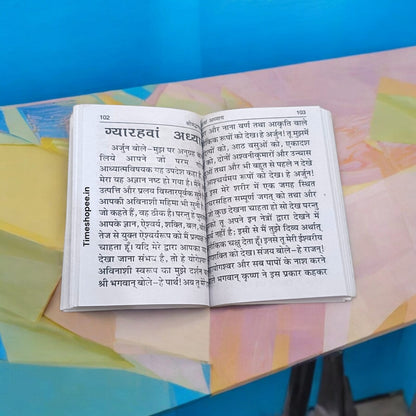 102
ग्यारहवां अध्या
अर्जुन बोले-मुझ पर अनुग्रह
लिये आपने जो परम
अध्यात्मविषयक यह उपदेश कहा
मेरा यह अज्ञान नष्ट हो गया है।
उत्पत्ति और प्रलय विस्तारपूर्वक
आपकी अविनाशी महिमा भी सुनी
जो कहते हैं, वह ठीक है। परन्तु हे
आपके ज्ञान, ऐश्वर्य, शक्ति, बल,
तेज से युक्त ऐश्वर्यरूप को मैं प्रत्यक्ष
चाहता हूँ। यदि मेरे द्वारा आपका
देखा जाना संभव है, तो हे योगेश्वर
अविनाशी स्वरूप का मुझे दर्शन
श्री भगवान् बोले-हे पार्थ! अब तू मेरे
अध्याय 103
और नाना वर्ण तथा आकृति वाले
रूपों को देख। हे अर्जुन! तू मुझमें
को, आठ वसुओं को, एकादश
को, दोनों अश्वनीकुमारों और उन्चास
तथा और भी बहुत से पहले न देखे
रूपों को देख। हे अर्जुन!
इस मेरे शरीर में एक जगह स्थित
सहित सम्पूर्ण जगत् को तथा और
कुछ देखना चाहता हो सो देख परन्तु
को तू अपने इन नेत्रों द्वारा देखने में
नहीं है; इसी से मैं तुझे दिव्य अर्थात्
चक्षु देता हूँ। इनसे तू मेरी ईश्वरीय
शक्ति को देख। संजय बोले-हे राजन्!
योगेश्वर और सब पापों के नाश करने
भगवान् कृष्ण ने इस प्रकार कहकर
Timeshopee.in